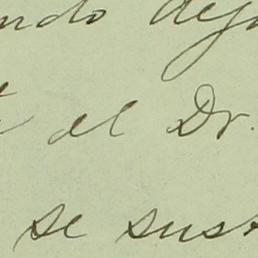 ndo dej
el Dr.
se sust